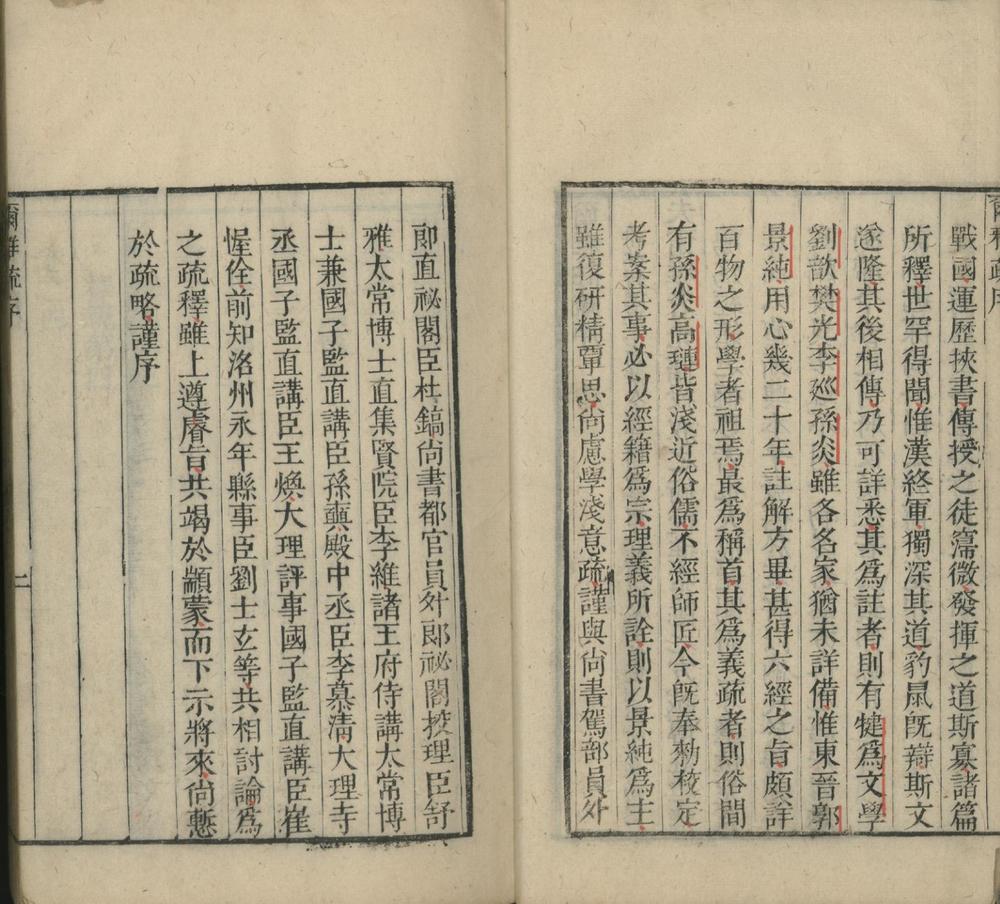 爾雅疏序
戰國運歷挾書傳授之徒寖微發揮之道斯寡諸篇
所釋世罕得聞惟漢終軍獨深其道豹鼠旣辯斯文
遂隆其後相傳乃可詳悉其爲註者則有犍爲文學
劉歆樊光李廵孫炎雖各名家猶未詳備惟東晉郭
景純用心幾二十年註解方畢甚得六經之旨頗詳
百物之形學者祖焉最爲稱首其爲義疏者則俗間
有孫炎高璉皆淺近俗儒不經師匠今旣奉勑校定
考案其事必以經籍爲宗理義所詮則以景純爲主
雖復研精覃思尚慮學淺意疏謹與尚書駕部員外
郎直祕閣臣杜鎬尚書都官員外郎祕閣挍理臣舒
雅太常博士直集賢院臣李維諸王府侍講太常博
士兼國子監直講臣孫奭殿中丞臣李慕清大理寺
丞國子監直講臣王煥大理評事國子監直講臣崔
偓佺前知洺州永年縣事臣劉士玄等共相討論爲
之疏釋雖上遵睿旨共竭於顓蒙而下示將來尚慙
於疏略謹序
爾雅疏序
二